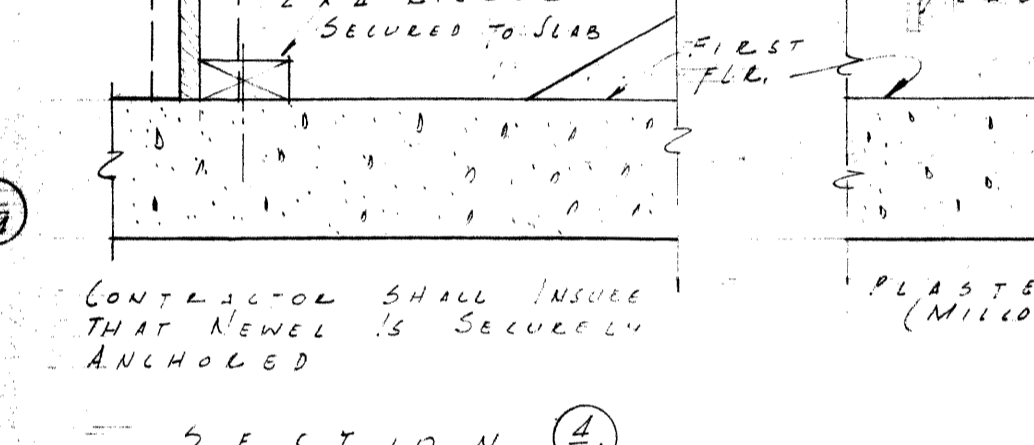 SECURED TO SLAB
FIRST
FLR.
CONTRACTOR SHALL INSURE
THAT NEWEL IS SECURELY
ANCHORED
SECTION 4